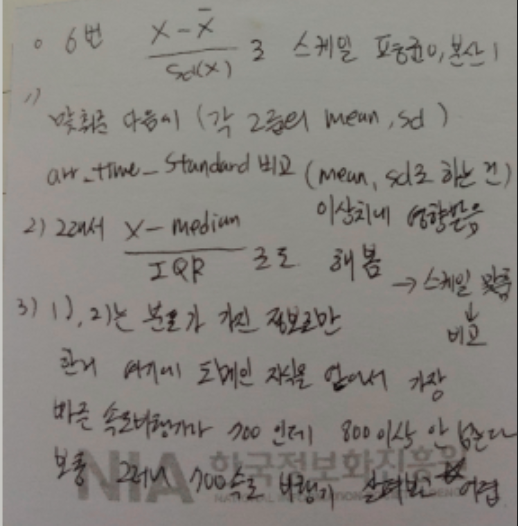 o 6번 X-X̄ / sd(X) 로 스케일 표준평균0, 분산1
1) 맞춰준 다음에 (각 그룹의 mean, sd)
arr_time_standard 비교 (mean, sd로 하는 건)
이상치에 영향받음
2) 그래서 X-median / IQR 으로 해봄
→ 스케일 맞춤
↓
비교
3) 1), 2)는 분포가 가진 정보로만
한거 여기에 도메인 지식을 얹어서 가장
빠른 속도비행기가 700인데 800이상 안 넘는다
보통 그러니 700속도 비행기 살펴보고 어렵
NIA 한국정보화진흥원